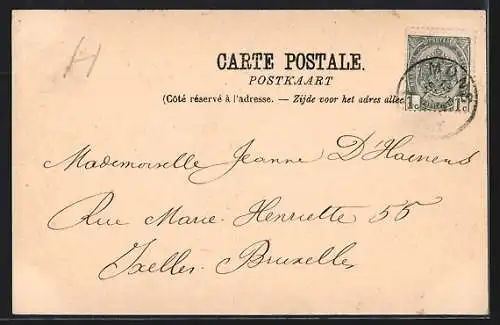 CARTE POSTALE.
POSTKAART
(Côté réservé à l'adresse. — Zijde voor het adres alleen
MONS
1c 1c
Mademoiselle Jeanne D'Haenens
Rue Marie-Henriette 55
Ixelles-Bruxelles